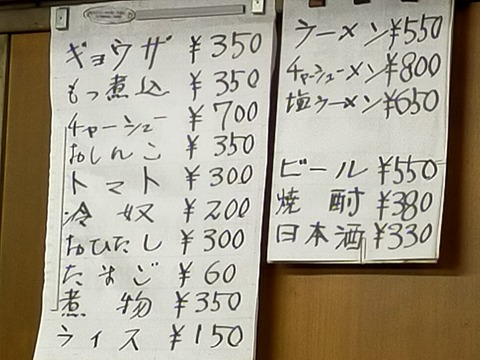 ギョウザ ¥350
もつ煮込 ¥350
チャーシュー ¥700
おしんこ ¥350
トマト ¥300
冷奴 ¥200
おひたし ¥300
たまご ¥60
煮物 ¥350
ライス ¥150
ラーメン ¥550
チャーシューメン ¥800
塩ラーメン ¥650
ビール ¥550
焼酎 ¥380
日本酒 ¥330